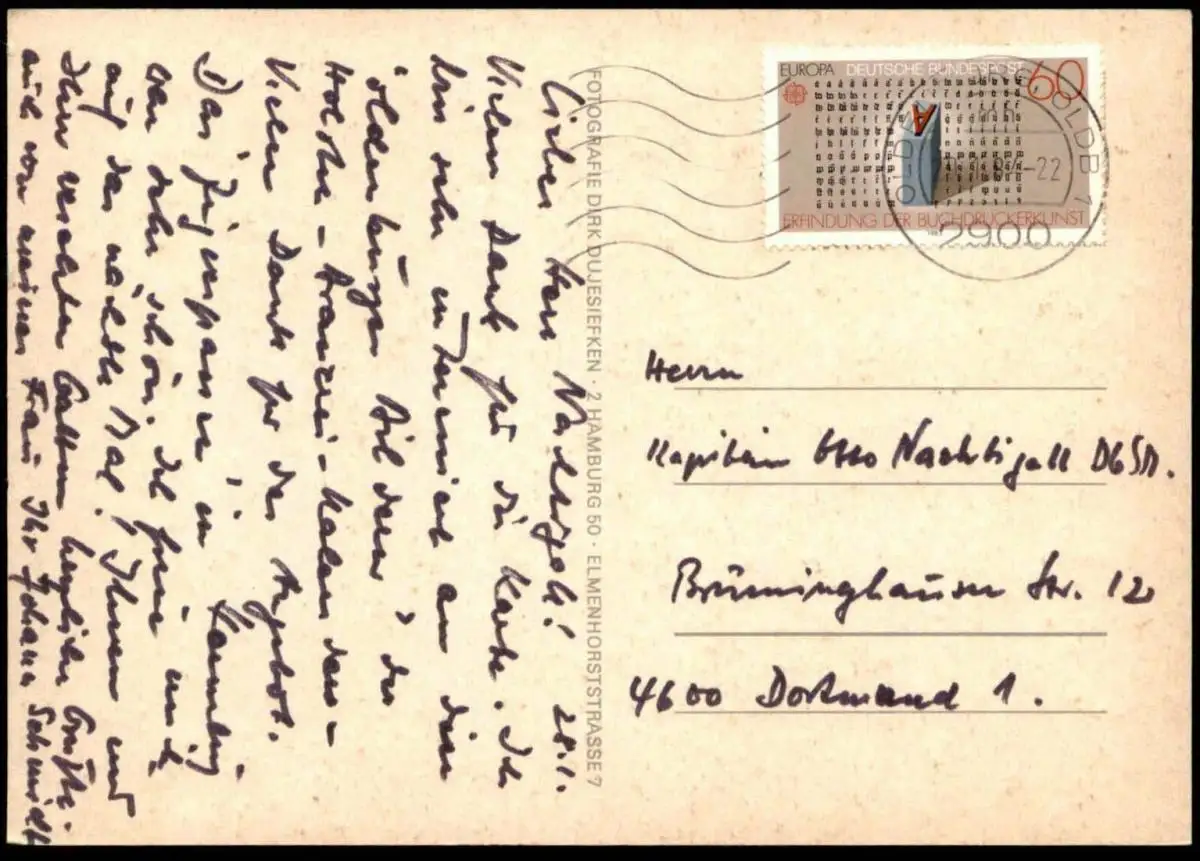 Lieber Herr Nachtigall! 28.1.
Vielen Dank für die Karte. Ich
bin sehr interessiert an den
Oldenburger Bildern, der
Holske-Brauerei-Kalender-
Vielen Dank für das Angebot.
Das Zusammensein in Hamburg
war sehr schön. Ich freue mich
auf das nächste Mal! Ihnen und
Ihrer verehrten Gattin herzliche Grüße
auch von meiner Frau Ihr Johann Schmidt
FOTOGRAFIE DIRK DUJESIEFKEN · 2 HAMBURG 50 · ELMENHORSTSTRASSE 7
EUROPA DEUTSCHE BUNDESPOST 60
A
ERFINDUNG DER BUCHDRUCKERKUNST
OLDB 1
-22
2900
Herrn
Kapitän Otto Nachtigall DGSM.
Brüninghauser Str. 12
4600 Dortmund 1.